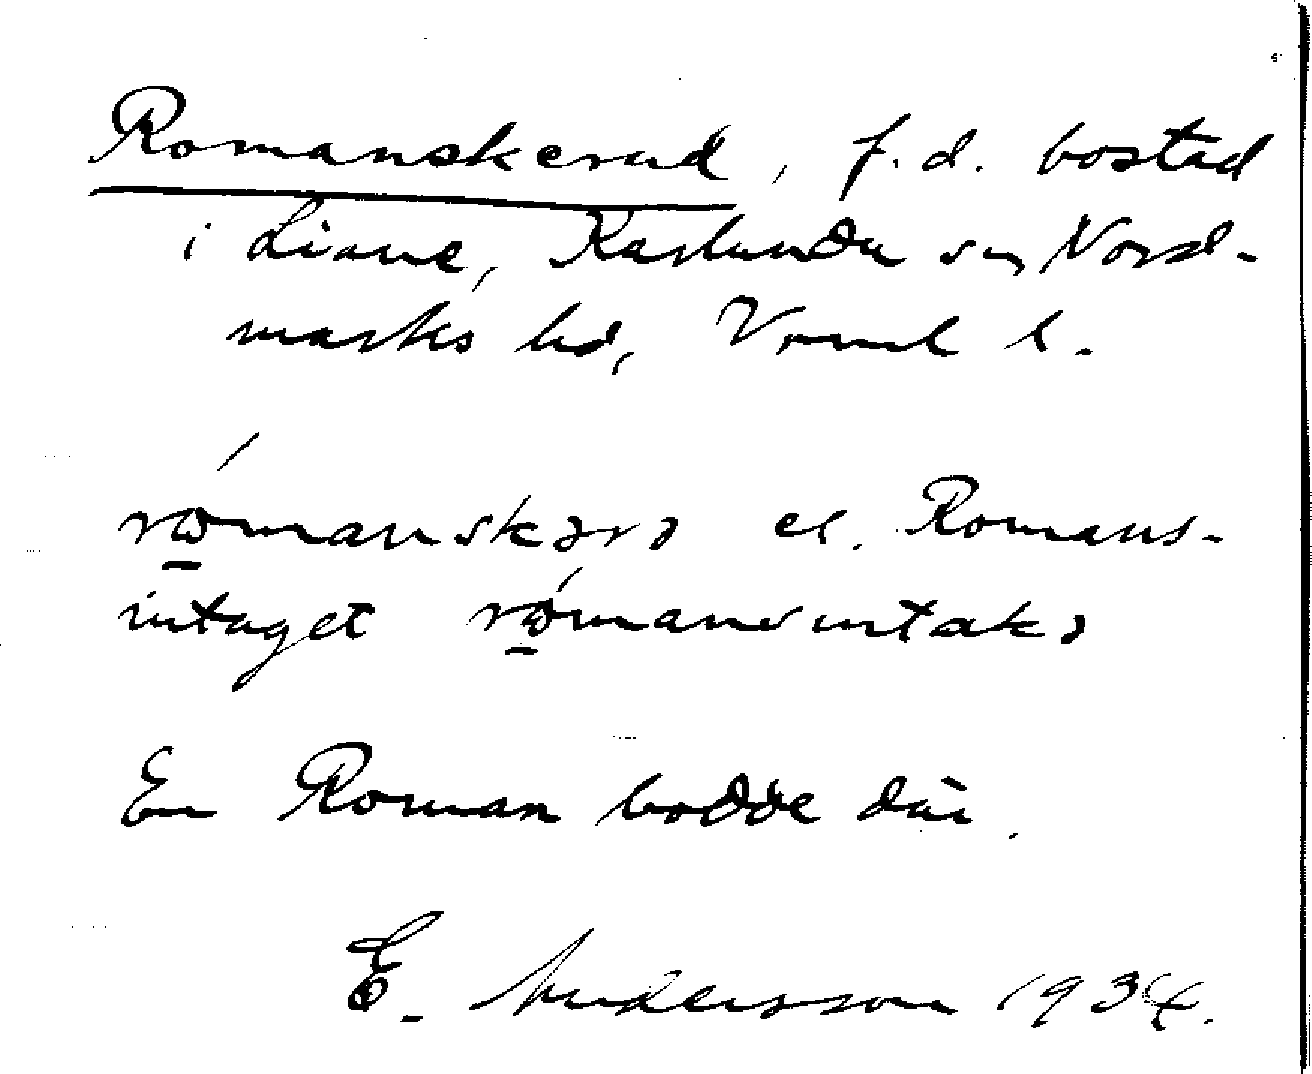 Romanskerud, f.d. bostad
i Liane, Karlanda sn, Nord-
marks hd, Vrml l.
rώmanskərə el. Romans-
intaget rώmansintakə
En Roman bodde där.
E. Andersson 1934.